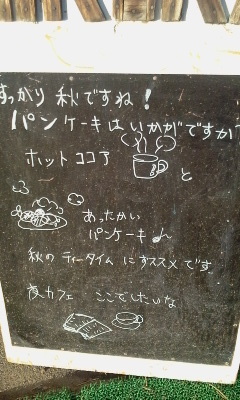 すっかり 秋ですね!
パンケーキはいかがですか
ホットココア
と
あったかい
パンケーキ♪
秋の ティータイム にオススメです
夜カフェ ここでしたいな